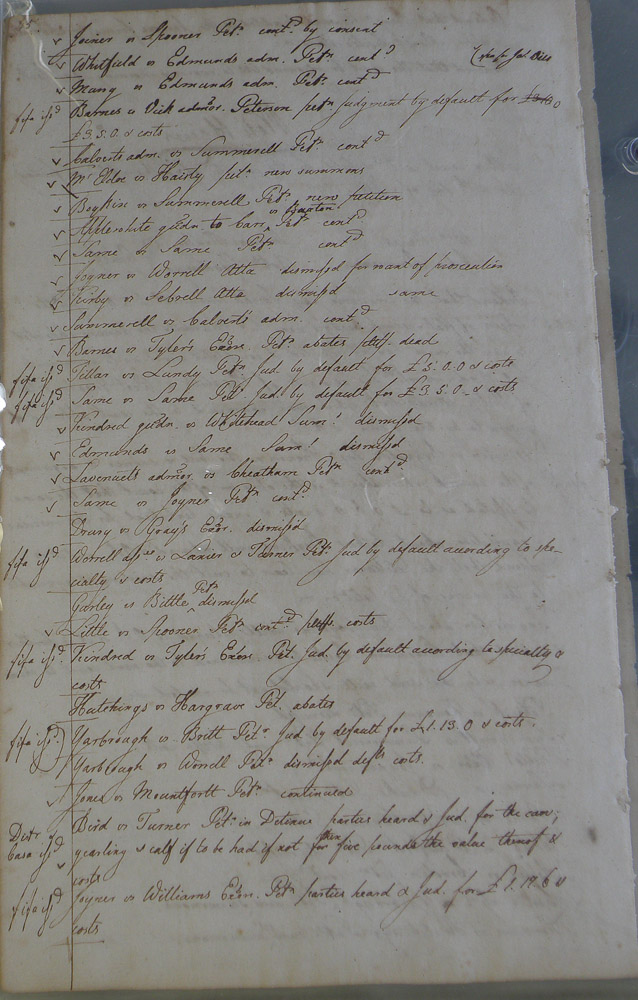 Joiner vs Spooner Petn. contd. by consent
Whitfield vs Edmunds adm. Petn contd
Mung vs Edmunds adm. Petn. contd
fifa issd Barnes vs Vick admor. Peterson petn Judgment by default for
£3.5.0 & costs
Calverts adm. vs Summerell Petn contd
Mc. vs Harty petn. new summons
Boykin vs Summerell Petn. new petition
Applewhite gdn. to Carr vs Petn contd
Same vs Same Petn. contd
Joyner vs Worrell Atta dismissd for want of prosecution
Kirby vs Sebrell Atta dismissd same
Summerell vs Calvert's adm. contd.
Barnes vs Tyler's Exor. Petn. abates pltff. dead
fifa issd Tillar vs Lundy Petn Jud. by default for £5.0.0 & costs
fifa issd Same vs Same Petn Jud. by default for £3.5.0. & costs
Kindred gdn. vs Whitehead Sums. dismissd
Edmunds vs Same Sums. dismissd
admor. vs Cheatham Petn contd.
Same vs Joyner Petn contd.
Drury vs Gray's Exor. dismissd
fifa issd Worrell assee vs Lanier & Turner Petn. Jud by default according to spe-
cialty & costs
Petn.
Gurley vs Bittle dismissd
Little vs Spooner Petn. contd. pltffs. costs
fifa issd. Kindred vs Tyler's Exors. Pet. Jud. by default according to specialty &
costs
Hutchings vs Hargrave Pet. abates
fifa issd. Yarbrough vs Britt Petn. Jud by default for £1.13.0 & costs.
Yarbrough vs Worrell Petn. dismissd defts costs.
Jones vs Mountforth Petn. continued
Bird vs Turner Petn. in Detinue parties heard & Jud. for the cow,
Distr casa issd yearling & calf if to be had if not then for five pounds the value thereof &
costs
fifa issd Joyner vs Williams Exors. Petn parties heard & Jud. for £1.19.6 &
costs